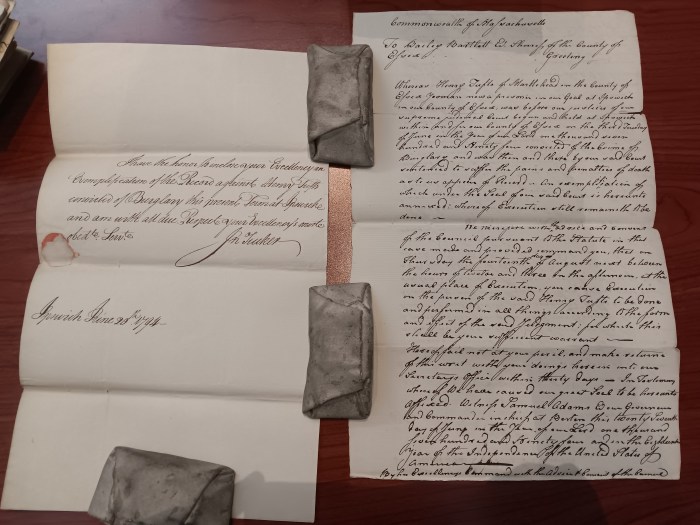 I have the honor to enclose your Excellency an
Exemplification of the Record against Henry Tufts
convicted of Burglary this present Term at Ipswich
and am with all due Respect your Excellency's most
obedt. Servt.
Jn Tucker
Ipswich June 20th 1794
Commonwealth of Massachusetts
To Bailey Bartlett Esq. Sheriff of the County of
Essex Greeting
Whereas Henry Tufts of Marblehead in the County of
Essex yeoman now a prisoner in our Goal at Ipswich
in our County of Essex, was before our justices of our
supreme judicial Court begun and held at Ipswich
within and for our County of Essex on the third Tuesday
of June in the Year of our Lord one thousand seven
hundred and Ninety four convicted of the Crime of
Burglary and was then and there by our said Court
sentenced to suffer the pains and penalties of death
as to us appears of Record: An exemplification of
which under the Seal of our said Court is hereunto
annexed: whereof Execution still remaineth to be
done —
We therefore with the advice and consent
of the Council pursuant to the Statute in this
case made and provided command you, that on
Thursday the fourteenth of August next between
the hours of twelve and three in the afternoon, at the
usual place of Execution, you cause Execution
on the person of the said Henry Tufts to be done
and performed in all things according to the form
and effect of the said Judgment: for which this
shall be your sufficient warrant —
Hereof fail not at your peril, and make return
of this writ with your doings herein into our
Secretary's Office within thirty days — In Testimony
whereof We have caused our great Seal to be hereunto
affixed. Witness Samuel Adams Esqr Governour
and Commander in chief at Boston this twenty seventh
day of June in the Year of our Lord one thousand
seven hundred and Ninety four and in the Eighteenth
Year of the Independence of the United States of
America —
By his Excellency's Command with the Advice & Consent of the Council